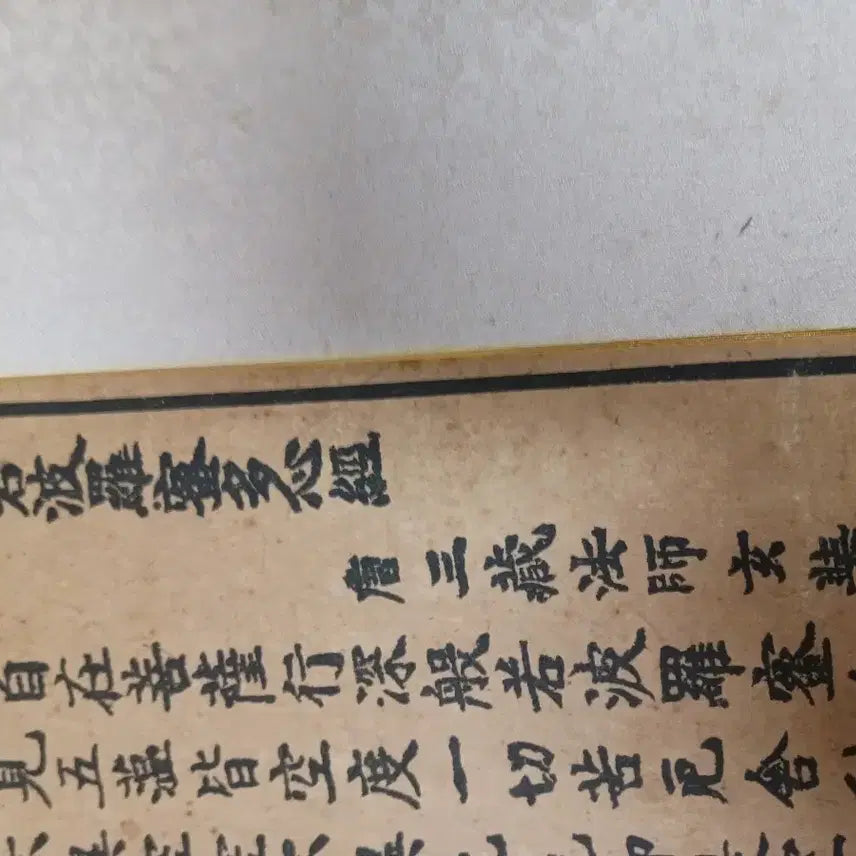 若波羅蜜多心經
唐三藏法師玄奘
自在菩薩行深般若波羅蜜
見五蘊皆空度一切苦厄舍